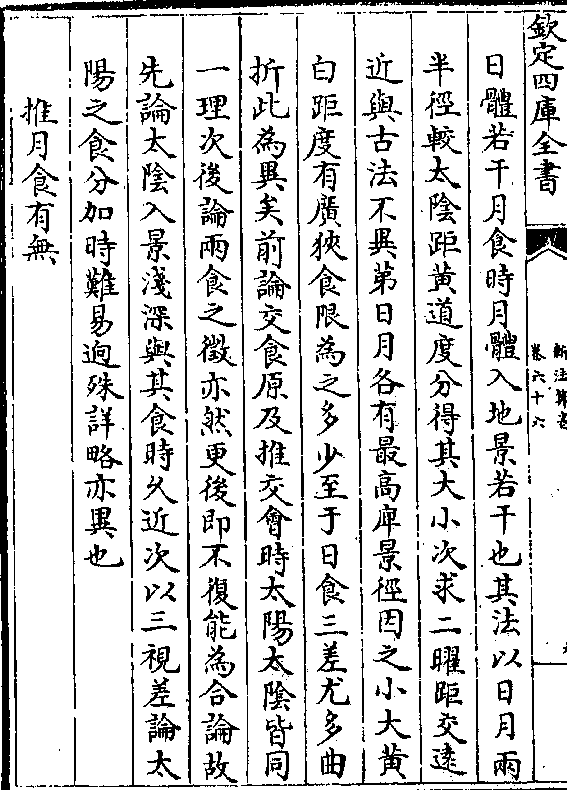 欽定四庫全書
新法算書
卷六十六
日體若干月食時月體入地景若干也其法以日月兩
半徑較太陰距黃道度分得其大小次求二曜距交遠
近與古法不異第日月各有最高庳景徑因之小大黃
白距度有廣狹食限為之多少至于日食三差尤多曲
折此為異矣前論交食原及推交會時太陽太陰皆同
一理次後論兩食之徵亦然更後即不復能為合論故
先論太陰入景淺深與其食時久近次以三視差論太
陽之食分加時難易逈殊詳略亦異也
推月食有無